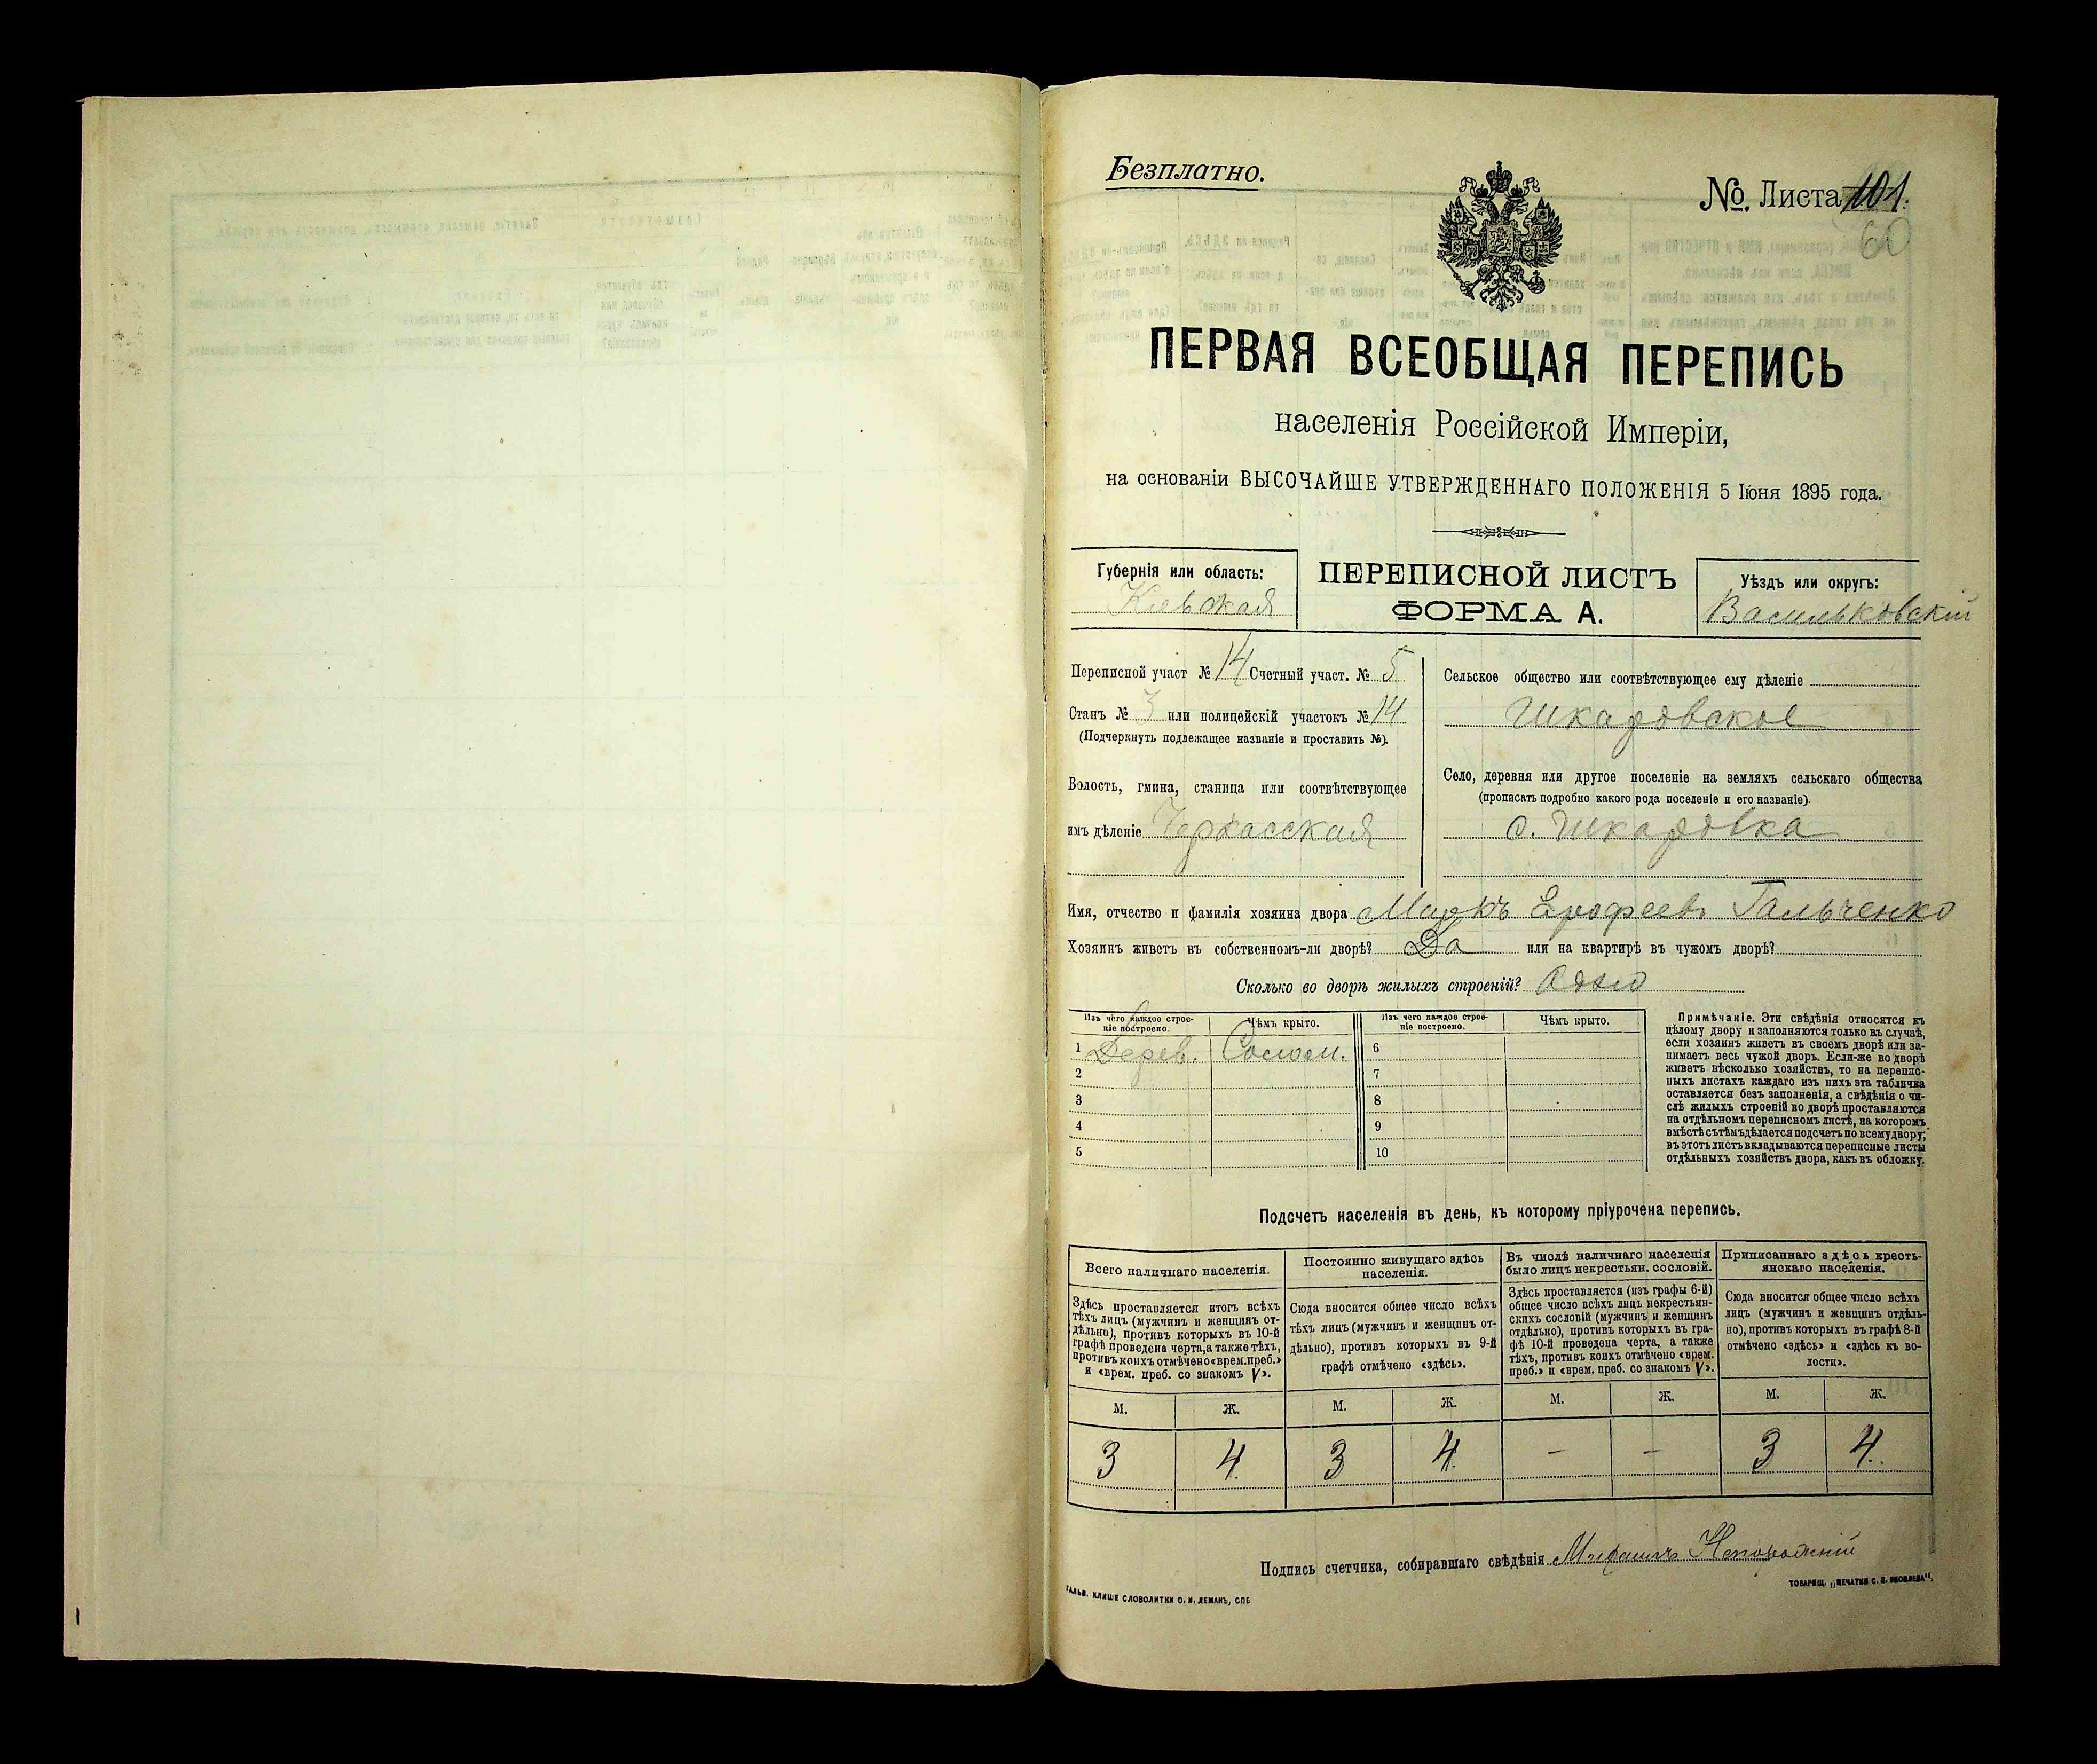 Безплатно.
№. Листа 101.
60
ПЕРВАЯ ВСЕОБЩАЯ ПЕРЕПИСЬ
населенія Россійской Имперіи,
на основаніи ВЫСОЧАЙШЕ УТВЕРЖДЕННАГО ПОЛОЖЕНІЯ 5 Іюня 1895 года.
Губернія или область:
Кіевская
ПЕРЕПИСНОЙ ЛИСТЪ
ФОРМА А.
Уѣздъ или округъ:
Васильковскій
Переписной участ № 14 Счетный участ. № 5
Станъ № 3 или полицейскій участокъ № 14
(Подчеркнуть подлежащее названіе и проставить №).
Волость, гмина, станица или соотвѣтствующее
имъ дѣленіе Черкасская
Сельское общество или соотвѣтствующее ему дѣленіе
Шкаровское
Село, деревня или другое поселеніе на земляхъ сельскаго общества
(прописать подробно какого рода поселеніе и его названіе).
с. Шкаровка
Имя, отчество и фамилія хозяина двора Маркъ Ерофеевъ Гальченко
Хозяинъ живетъ въ собственномъ-ли дворѣ? Да или на квартирѣ въ чужомъ дворѣ?
Сколько во дворѣ жилыхъ строеній? Одно
Изъ чего каждое строе-
ніе построено.
Чѣмъ крыто.
Изъ чего каждое строе-
ніе построено.
Чѣмъ крыто.
1 Дерев. Солом. 6
2 7
3 8
4 9
5 10
Примѣчаніе. Эти свѣдѣнія относятся къ
цѣлому двору и заполняются только въ случаѣ,
если хозяинъ живетъ въ своемъ дворѣ или за-
нимаетъ весь чужой дворъ. Если-же во дворѣ
живетъ нѣсколько хозяйствъ, то на перепис-
ныхъ листахъ каждаго изъ нихъ эта табличка
оставляется безъ заполненія, а свѣдѣнія о чи-
слѣ жилыхъ строеній во дворѣ проставляются
на отдѣльномъ переписномъ листѣ, на которомъ
вмѣстѣ съ тѣмъ дѣлается подсчетъ по всему двору;
въ этотъ листъ вкладываются переписные листы
отдѣльныхъ хозяйствъ двора, какъ въ обложку.
Подсчетъ населенія въ день, къ которому пріурочена перепись.
Всего наличнаго населенія.
Здѣсь проставляется итогъ всѣхъ
тѣхъ лицъ (мужчинъ и женщинъ от-
дѣльно), противъ которыхъ въ 10-й
графѣ проведена черта, а также тѣхъ,
противъ коихъ отмѣчено «врем. преб.»
и «врем. преб. со знакомъ V».
Постоянно живущаго здѣсь
населенія.
Сюда вносится общее число всѣхъ
тѣхъ лицъ (мужчинъ и женщинъ от-
дѣльно), противъ которыхъ въ 9-й
графѣ отмѣчено «здѣсь».
Въ числѣ наличнаго населенія
было лицъ некрестьян. сословій.
Здѣсь проставляется (изъ графы 6-й)
общее число всѣхъ лицъ некрестьян-
скихъ сословій (мужчинъ и женщинъ
отдѣльно), противъ которыхъ въ гра-
фѣ 10-й проведена черта, а также
тѣхъ, противъ коихъ отмѣчено «врем.
преб.» и «врем. преб. со знакомъ V».
Приписаннаго здѣсь кресть-
янскаго населенія.
Сюда вносится общее число всѣхъ
лицъ (мужчинъ и женщинъ отдѣль-
но), противъ которыхъ въ графѣ 8-й
отмѣчено «здѣсь» и «здѣсь къ во-
лости».
М. Ж. М. Ж. М. Ж. М. Ж.
3 4. 3 4. – – 3 4.
Подпись счетчика, собиравшаго свѣдѣнія
ГАЛЬВ. КЛИШЕ СЛОВОЛИТНИ О. И. ЛЕМАНЪ, СПБ
ТОВАРИЩ. „ПЕЧАТНЯ С. П. ЯКОВЛЕВА".